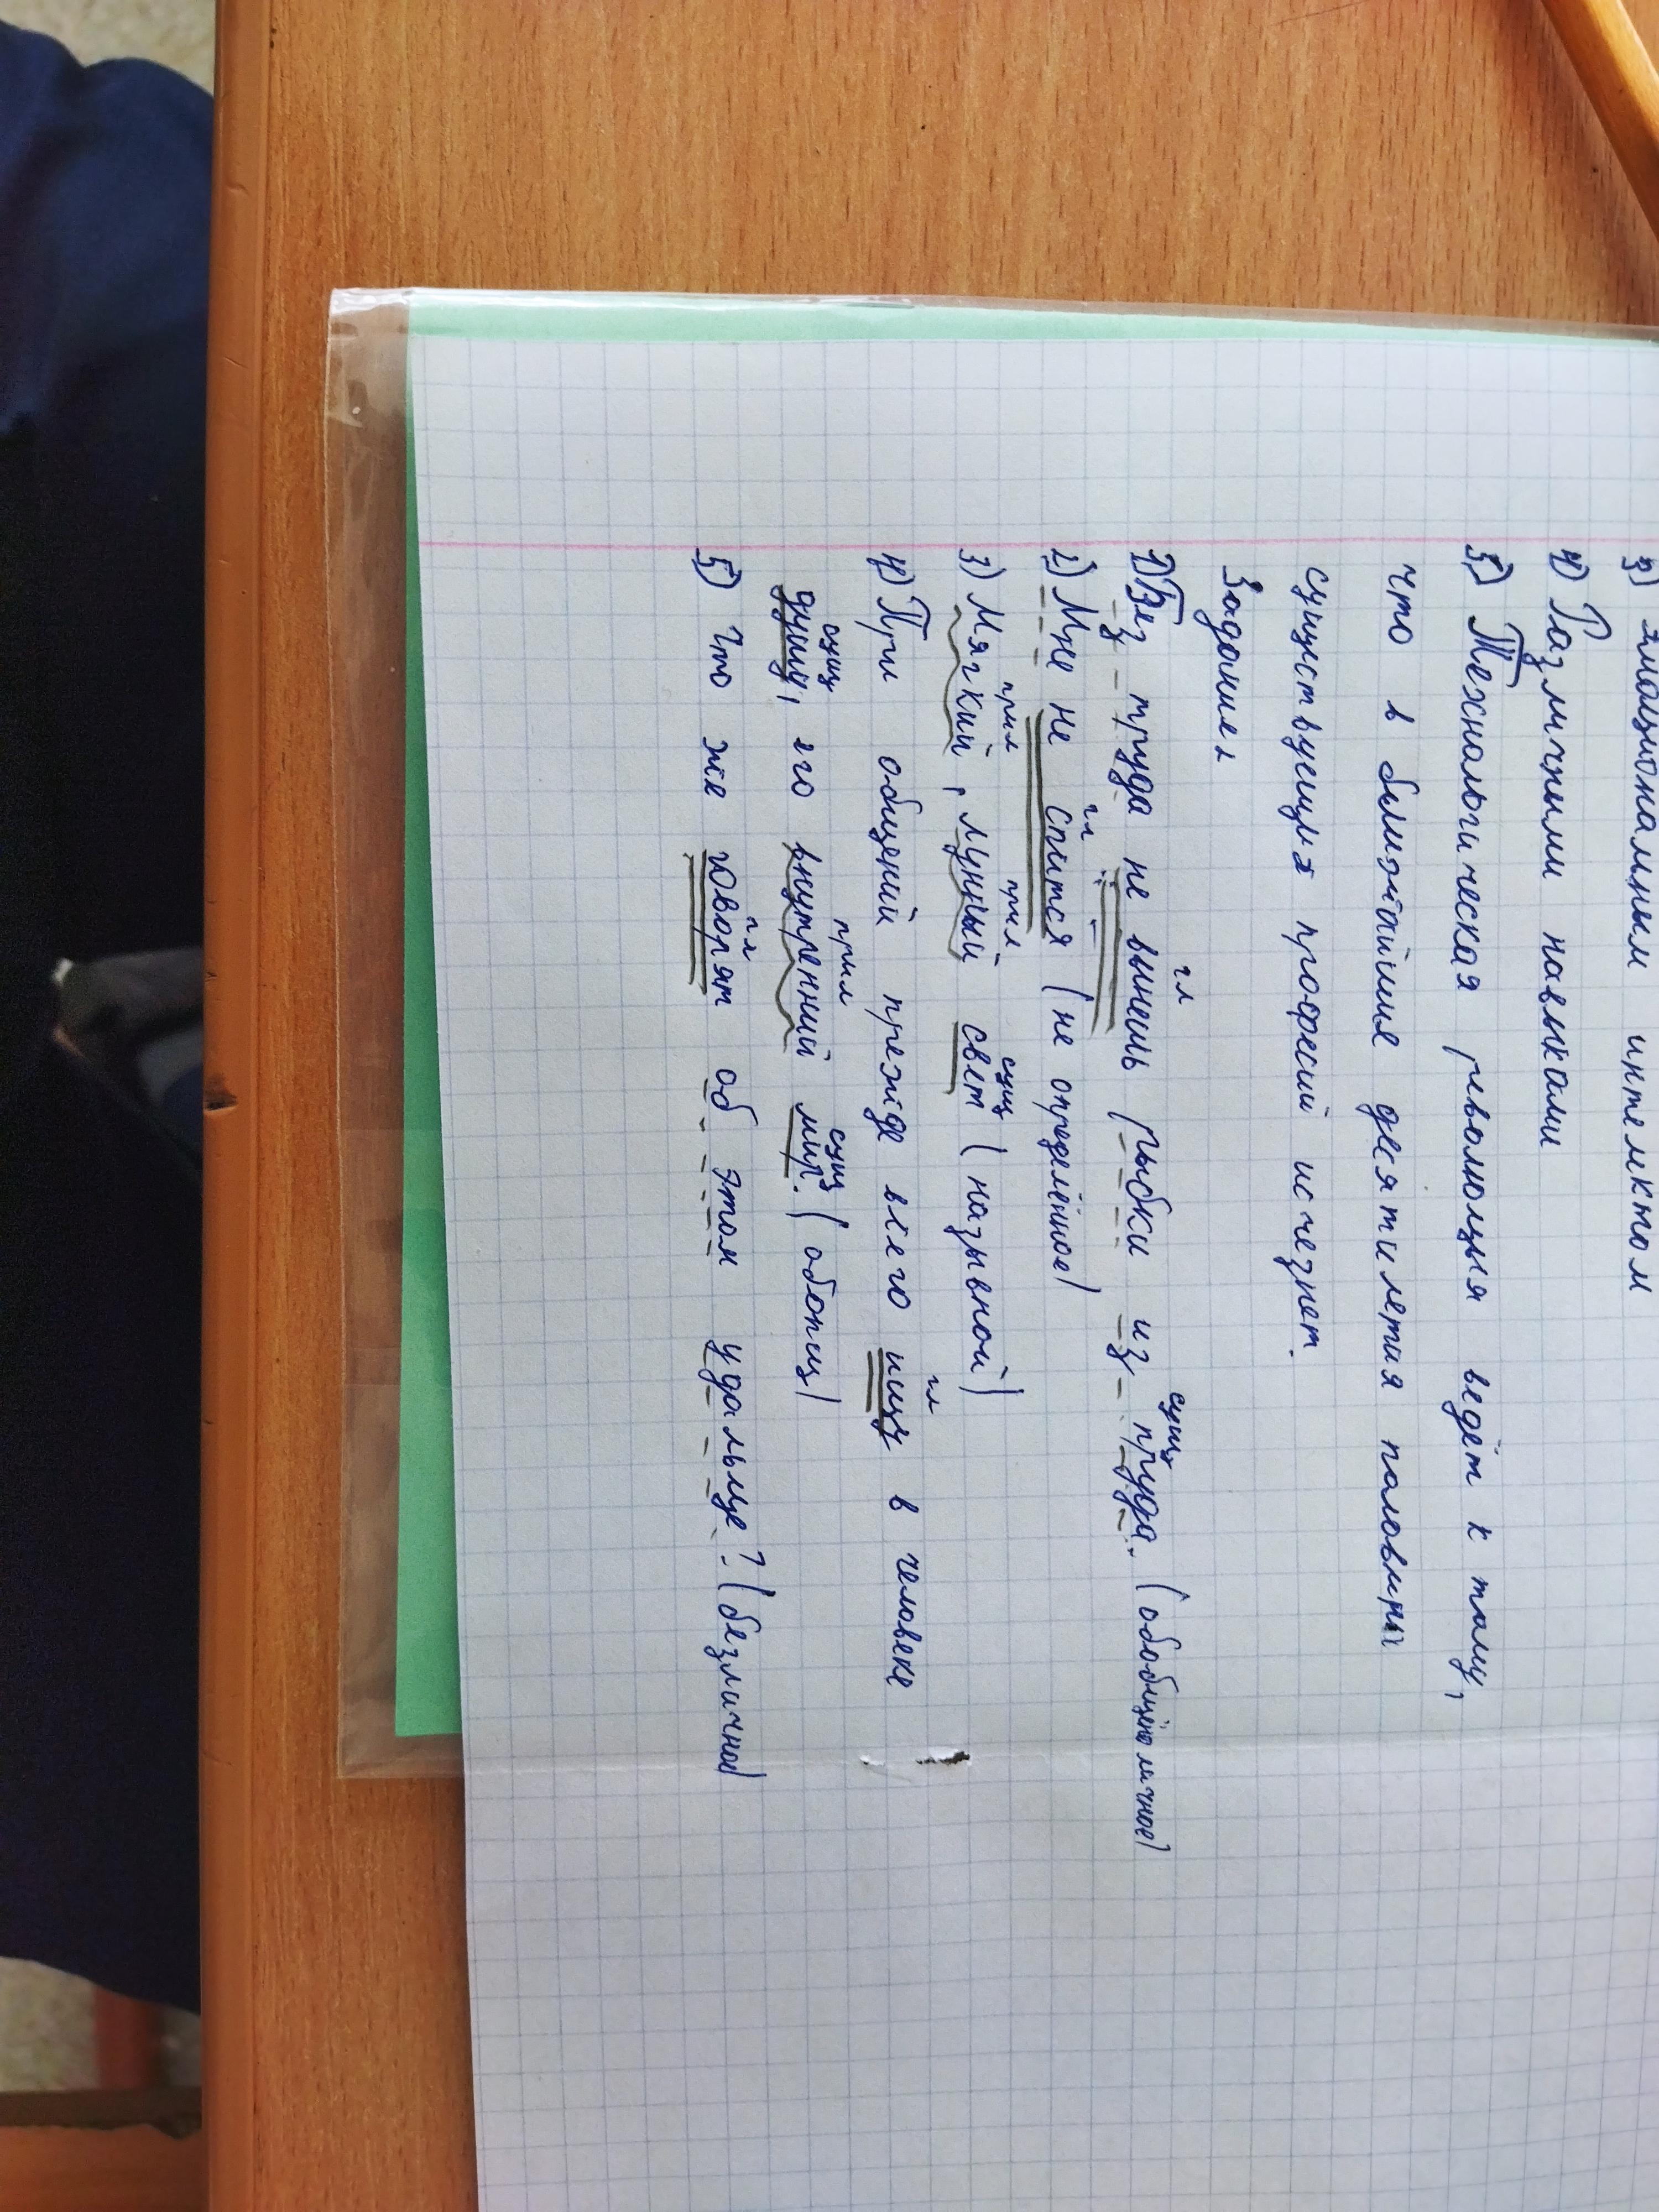 3) эмоциональным интелектом
4) Различными навыками
5) Технологическая революция ведёт к тому,
что в ближайшие десятилетия половины
существующих професий исчезнет.
Задание
1) Без труда не вынешь рыбки из пруда. (обобщённо личное)
гл сущ
2) Мне не спится (не определённое)
гл
3) Мягкий, лунный свет (назывной)
прил прил сущ
4) При общений прежде всего ищу в человеке
гл
душу, его внутренний мир. (обопщ)
сущ прил сущ
5) Что же говорят об этом удальце? (безличное)
гл